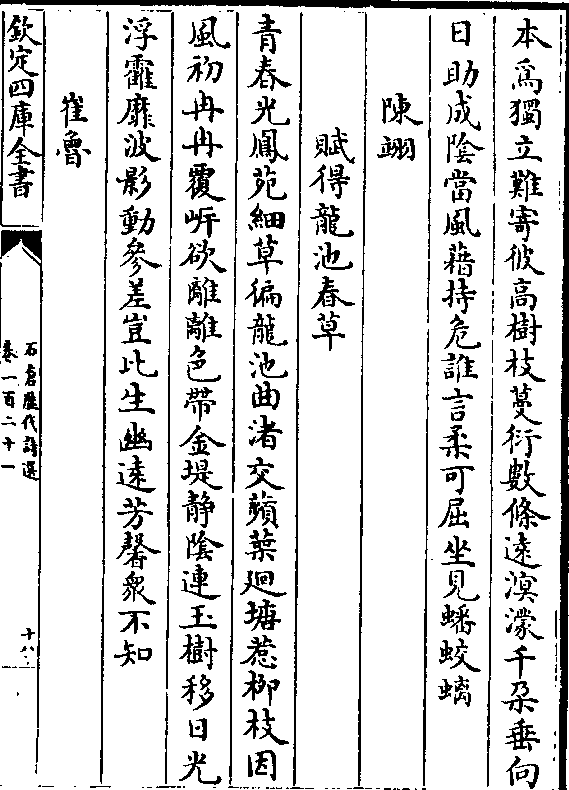 本爲獨立難寄彼高樹枝蔓衍數條遠溟濛千朶垂向
日助成陰當風藉持危誰言柔可屈坐見蟠蛟螭
陳翊
賦得龍池春草
青春光鳳苑細草徧龍池曲渚交蘋葉廻塘惹柳枝因
風初冉冉覆岍欲離離色帶金堤静陰連玉樹移日光
浮靃靡波影動參差豈比生幽逺芳馨衆不知
崔魯
欽定四庫全書
石倉歴代詩選
卷一百二十一
十八